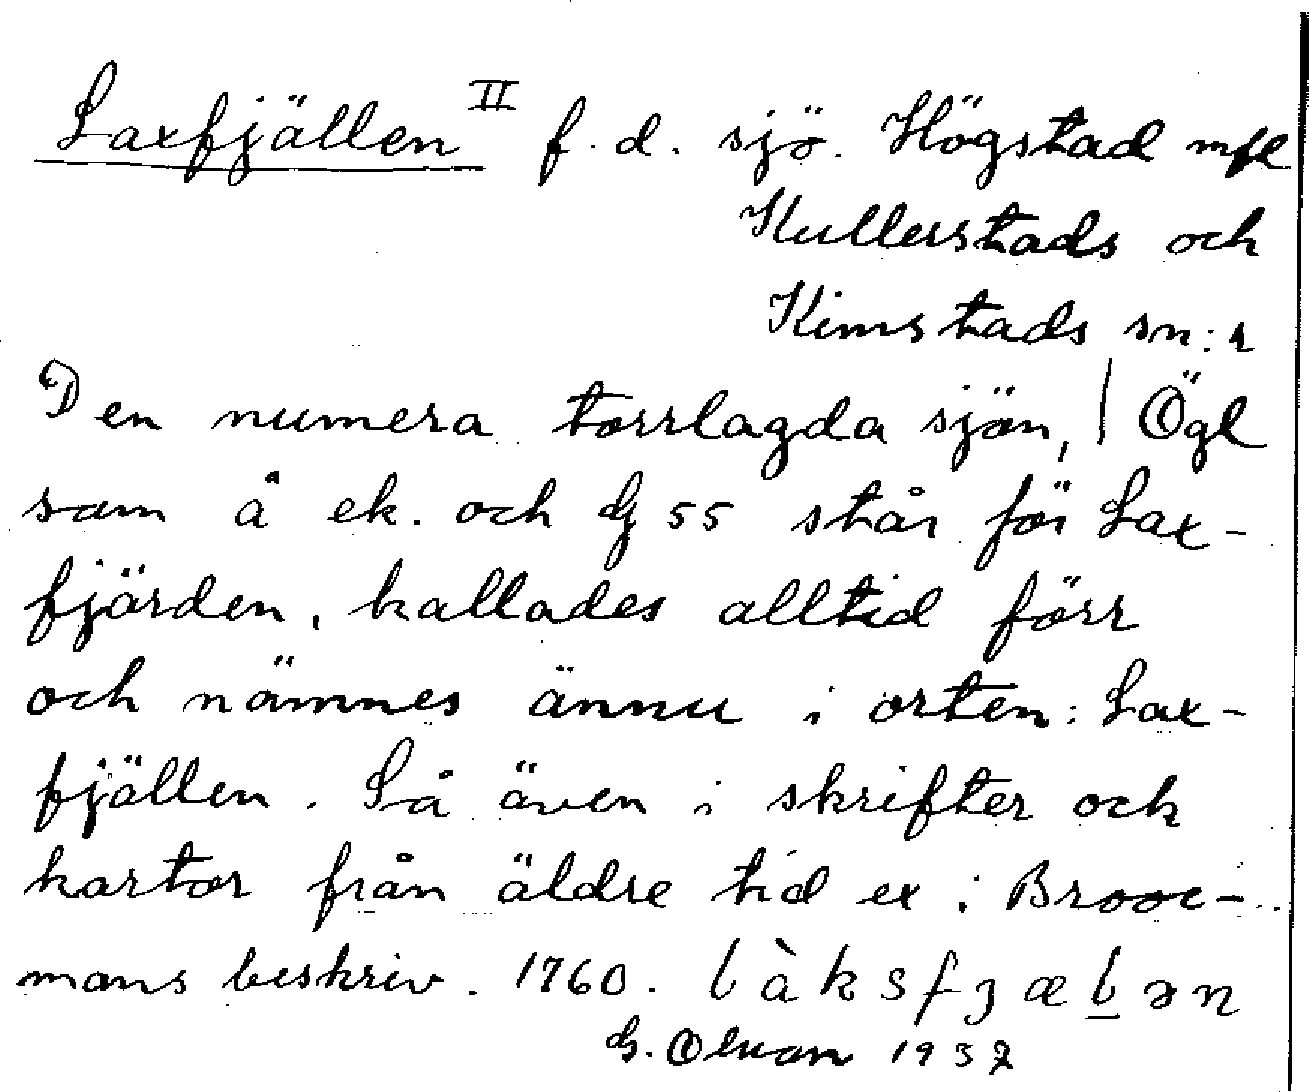 Laxfjällen II f.d. sjö. Högstad mfl
Kullerstads och
Kimstads sn:r
Den numera torrlagda sjön, | Ögl
som å ek. och G 55 står för Lax-
fjärden, kallades alltid förr
och nämnes ännu i orten: Lax-
fjällen. Så även i skrifter och
kartor från äldre tid ex i Brooc-
mans beskriv. 1760.
G. 1937